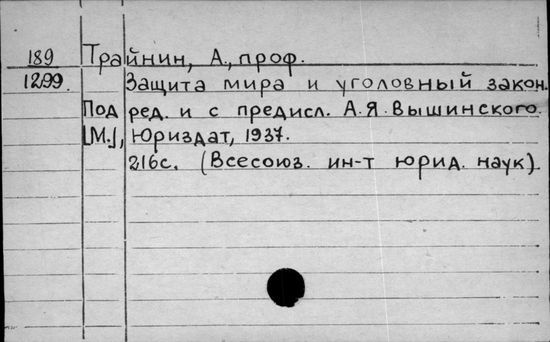 189 Трайнин, А., проф.
1299. Защита мира и уголовный закон.
Под ред. и с предисл. А.Я. Вышинского.
[М.], Юриздат, 1937.
216с. (Всесоюз. ин-т юрид. наук).